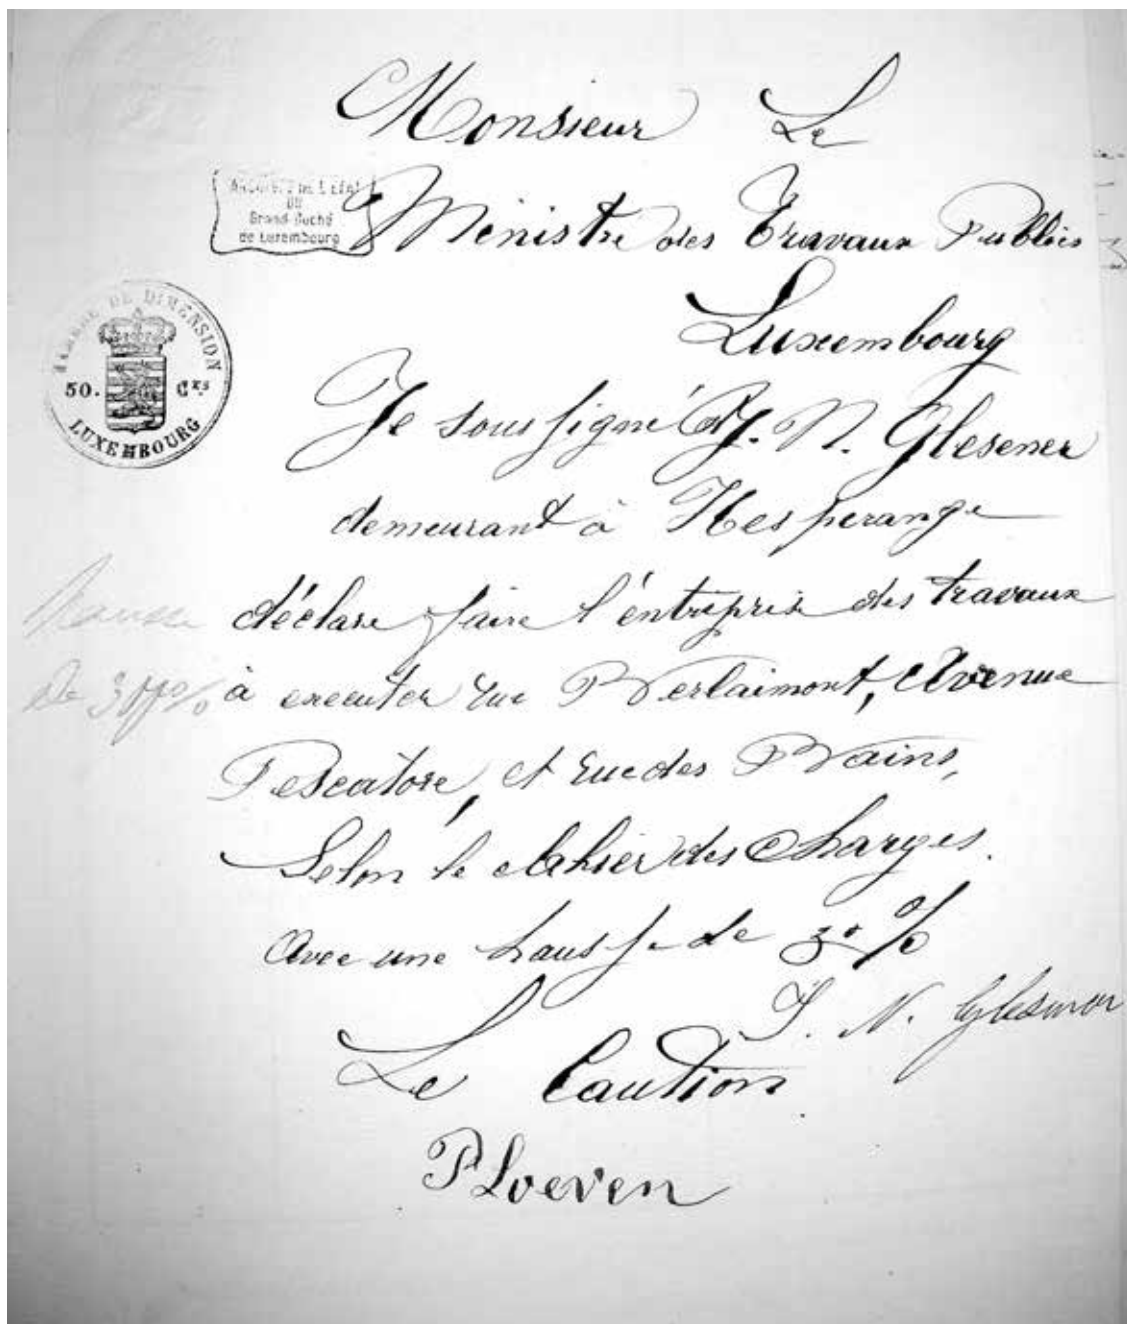 Monsieur Le
ARCHIVES DE L'ETAT
DU
Grand-Duché
de Luxembourg
Ministre des Travaux Publics
Luxembourg
TIMBRE DE DIMENSION
50. Cts.
LUXEMBOURG
Je soussigné J. N. Glesener
demeurant à Hesperange
déclare faire l'entreprise des travaux
à executer rue Berlaimont, Avenue
Pescatore, et rue des Bains,
Selon le Cahier des Charges.
Avec une hausse de %
J. N. Glesener
Le Caution
P Loeven
hausse
de 3 %